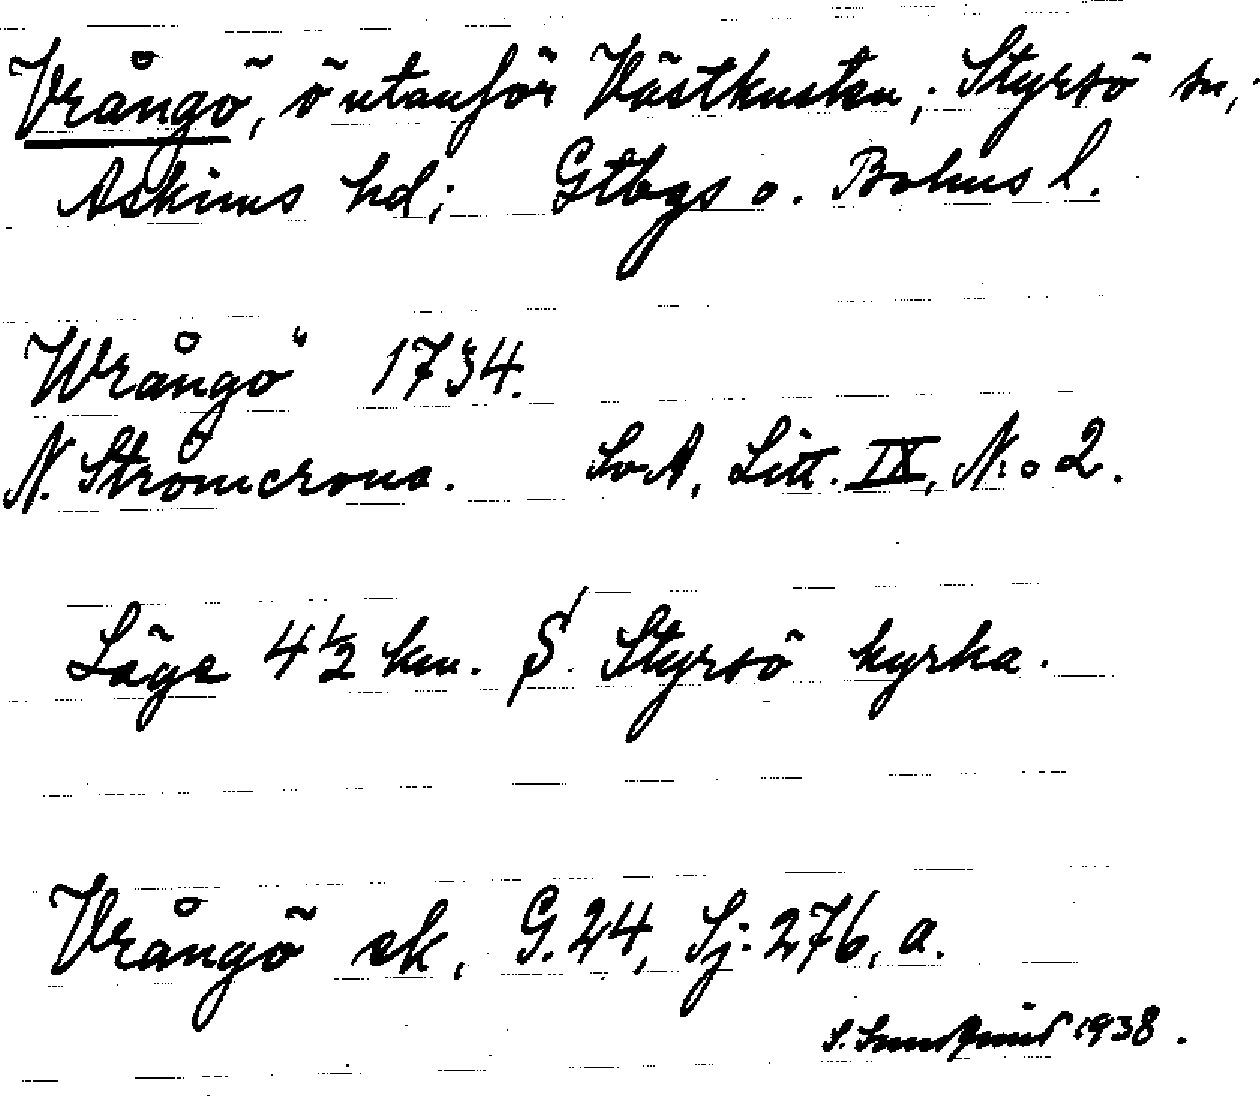 Vrångö, ö utanför Västkusten; Styrsö sn,
Askims hd; Gtbgs o. Bohus l.
Wrångö 1734.
N. Strömcrona. SvA, Litt. IX, N:o 2.
Läge 4 1/2 km. S Styrsö kyrka.
Vrångö ek, G. 24, Sj: 276, a.
S. 1938.